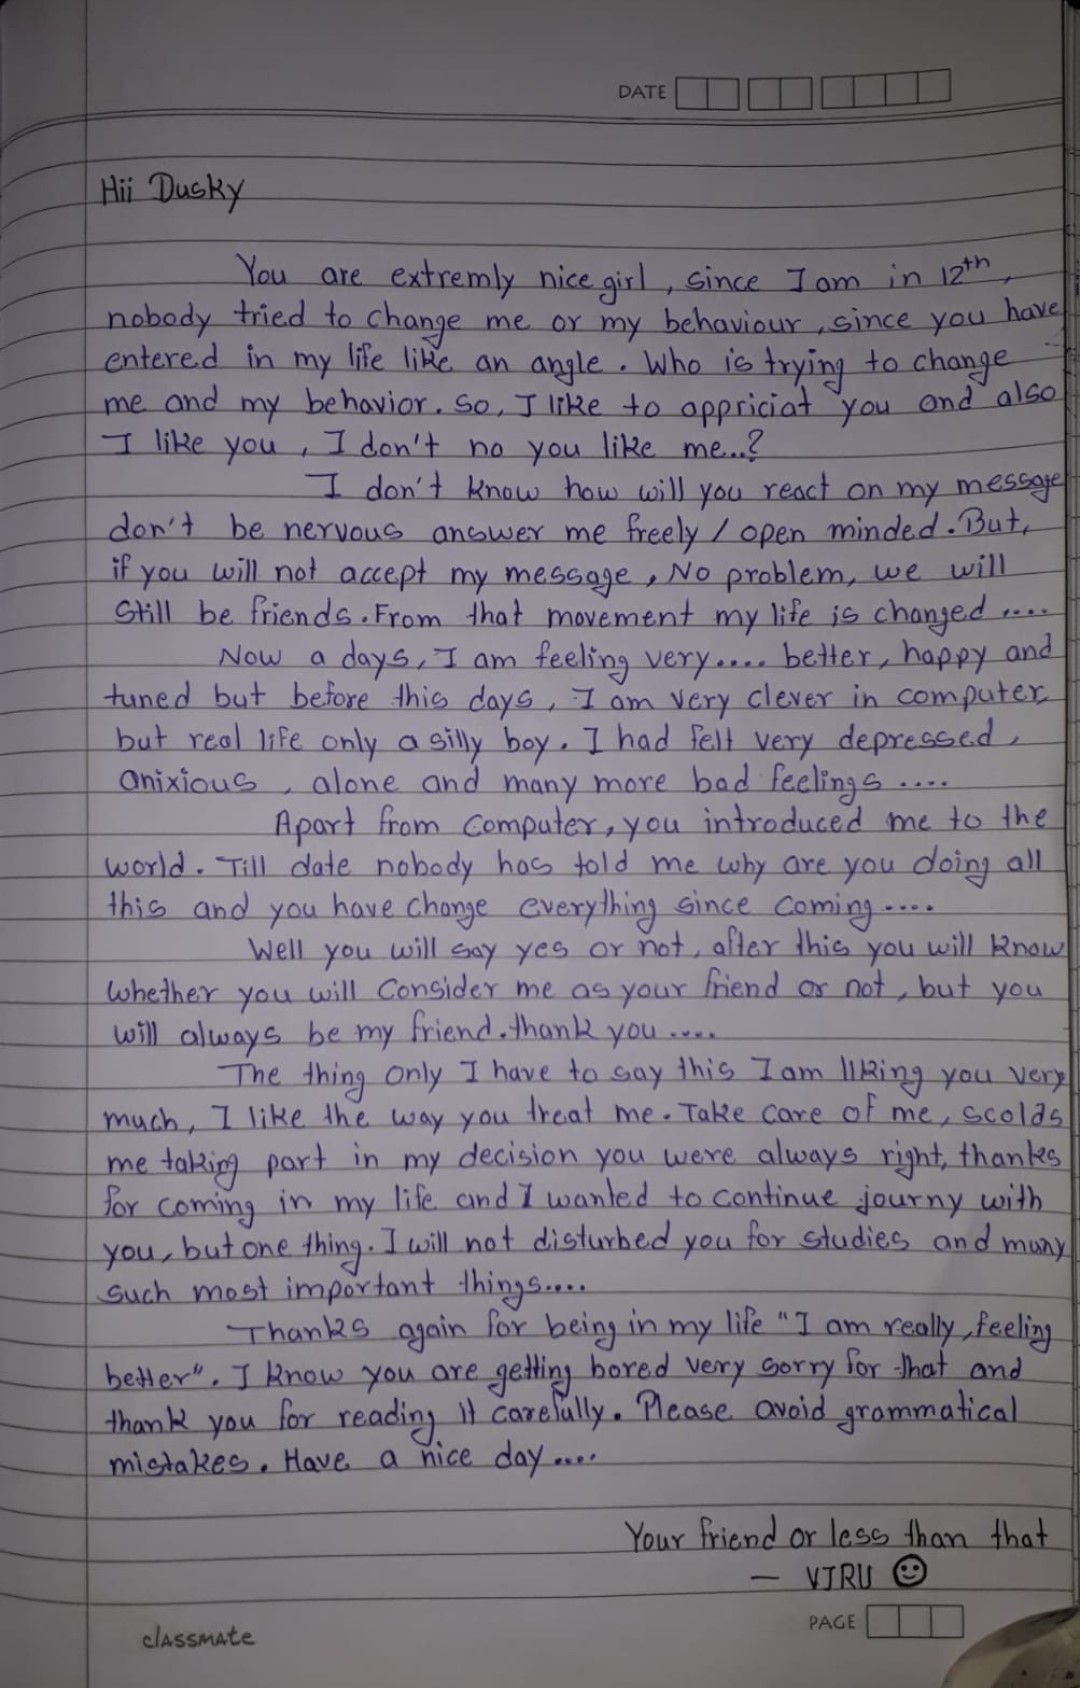 DATE
Hii Dusky
You are extremly nice girl, since I am in 12th,
nobody tried to change me or my behaviour, since you have
entered in my life like an angle. Who is trying to change
me and my behavior. So, I like to appriciat you and also
I like you, I don't no you like me..?
I don't know how will you react on my message
don't be nervous answer me freely / open minded. But,
if you will not accept my message, No problem, we will
Still be friends. From that movement my life is changed ....
Now a days, I am feeling very.... better, happy and
tuned but before this days, I am very clever in computer,
but real life only a silly boy. I had felt very depressed,
anixious, alone and many more bad feelings ....
Apart from Computer, you introduced me to the
world. Till date nobody has told me why are you doing all
this and you have change everything since coming....
Well you will say yes or not, after this you will know
whether you will Consider me as your friend or not, but you
will always be my friend. thank you ....
The thing only I have to say this I am liking you very
much, I like the way you treat me. Take care of me, scolds
me taking part in my decision you were always right, thanks
for coming in my life and I wanted to continue journy with
you, but one thing. I will not disturbed you for studies and many
such most important things....
Thanks again for being in my life "I am really, feeling
better". I know you are getting bored very sorry for that and
thank you for reading it carefully. Please avoid grammatical
mistakes. Have a nice day ....
Your friend or less than that
— VIRU ☺
PAGE
classmate